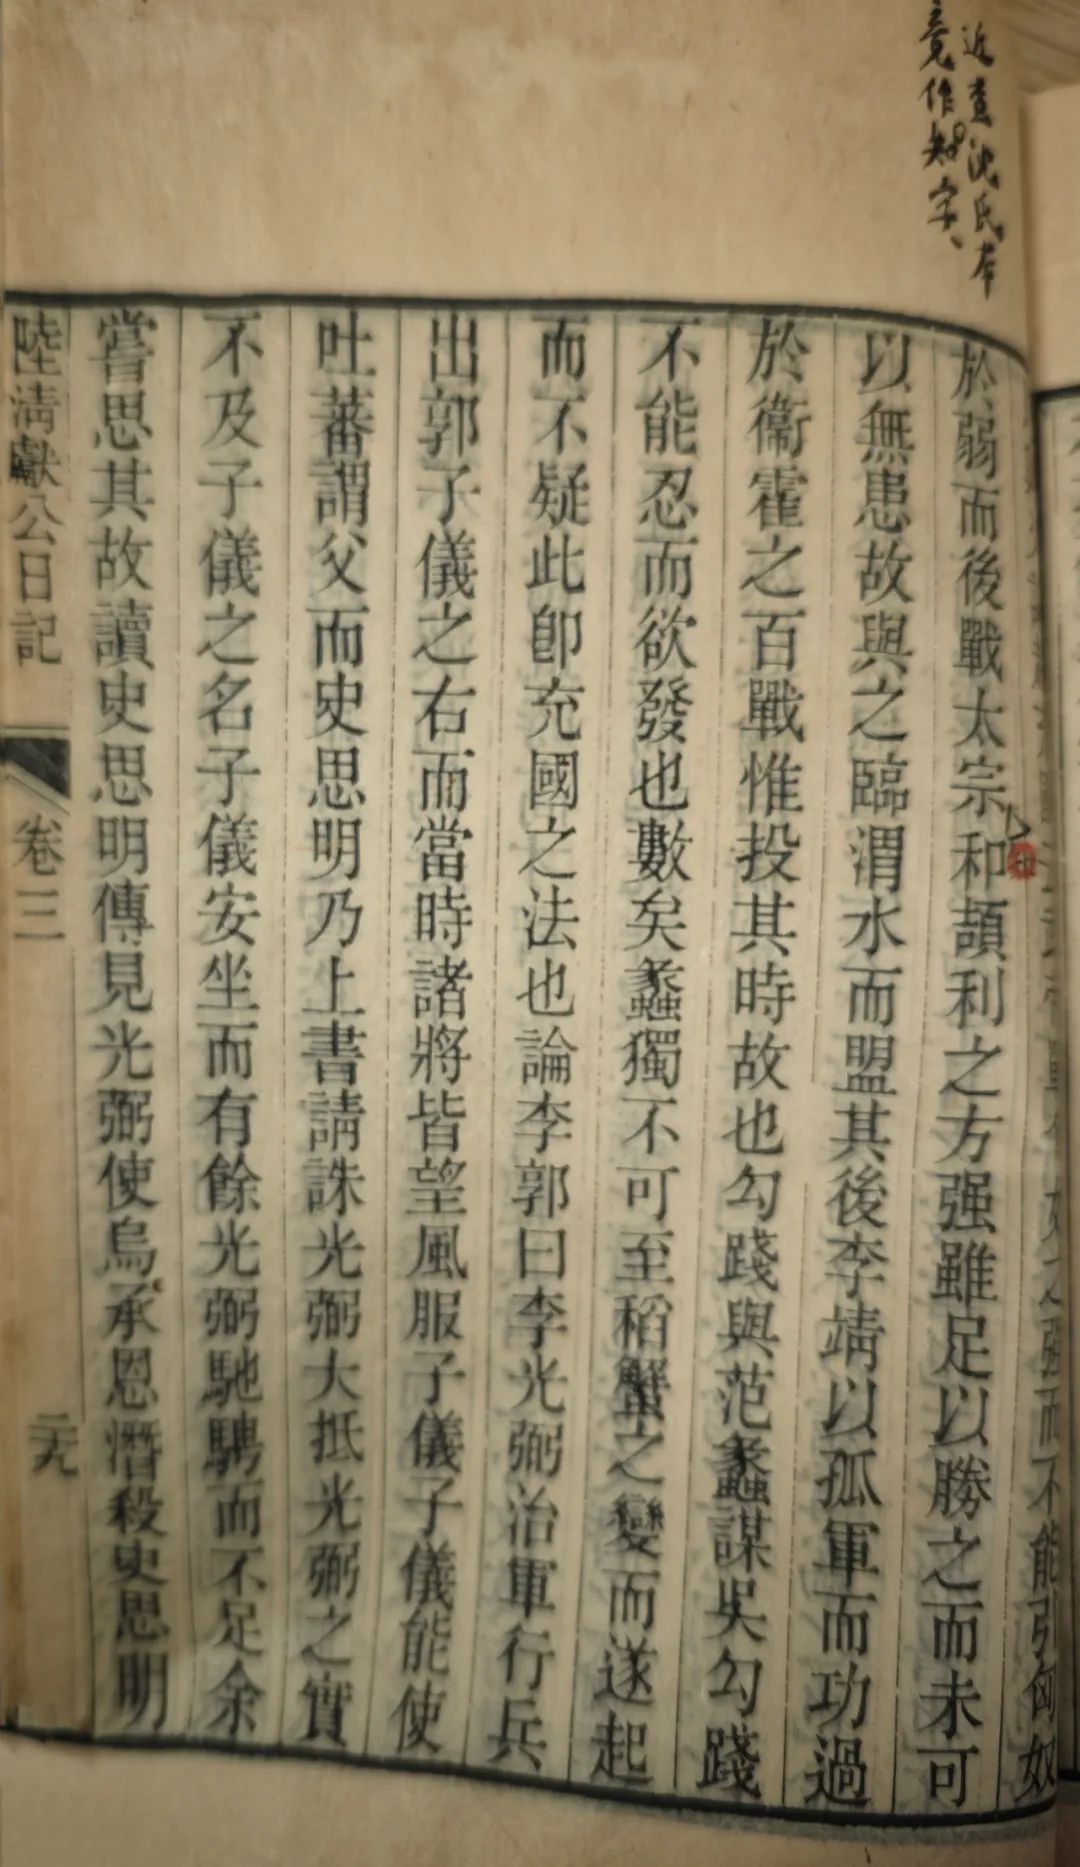 近查沈氏本
竟作知字、
於弱而後戰太宗和頡利之方强雖足以勝之而未可
以無患故與之臨渭水而盟其後李靖以孤軍而功過
於衞霍之百戰惟投其時故也勾踐與范蠡謀吳勾踐
不能忍而欲發也數矣蠡獨不可至稻蟹之變而遂起
而不疑此卽充國之法也論李郭曰李光弼治軍行兵
出郭子儀之右而當時諸將皆望風服子儀子儀能使
吐蕃謂父而史思明乃上書請誅光弼大抵光弼之實
不及子儀之名子儀安坐而有餘光弼馳騁而不足余
嘗思其故讀史思明傳見光弼使烏承恩潛殺史思明
陸淸獻公日記
卷三
二十九